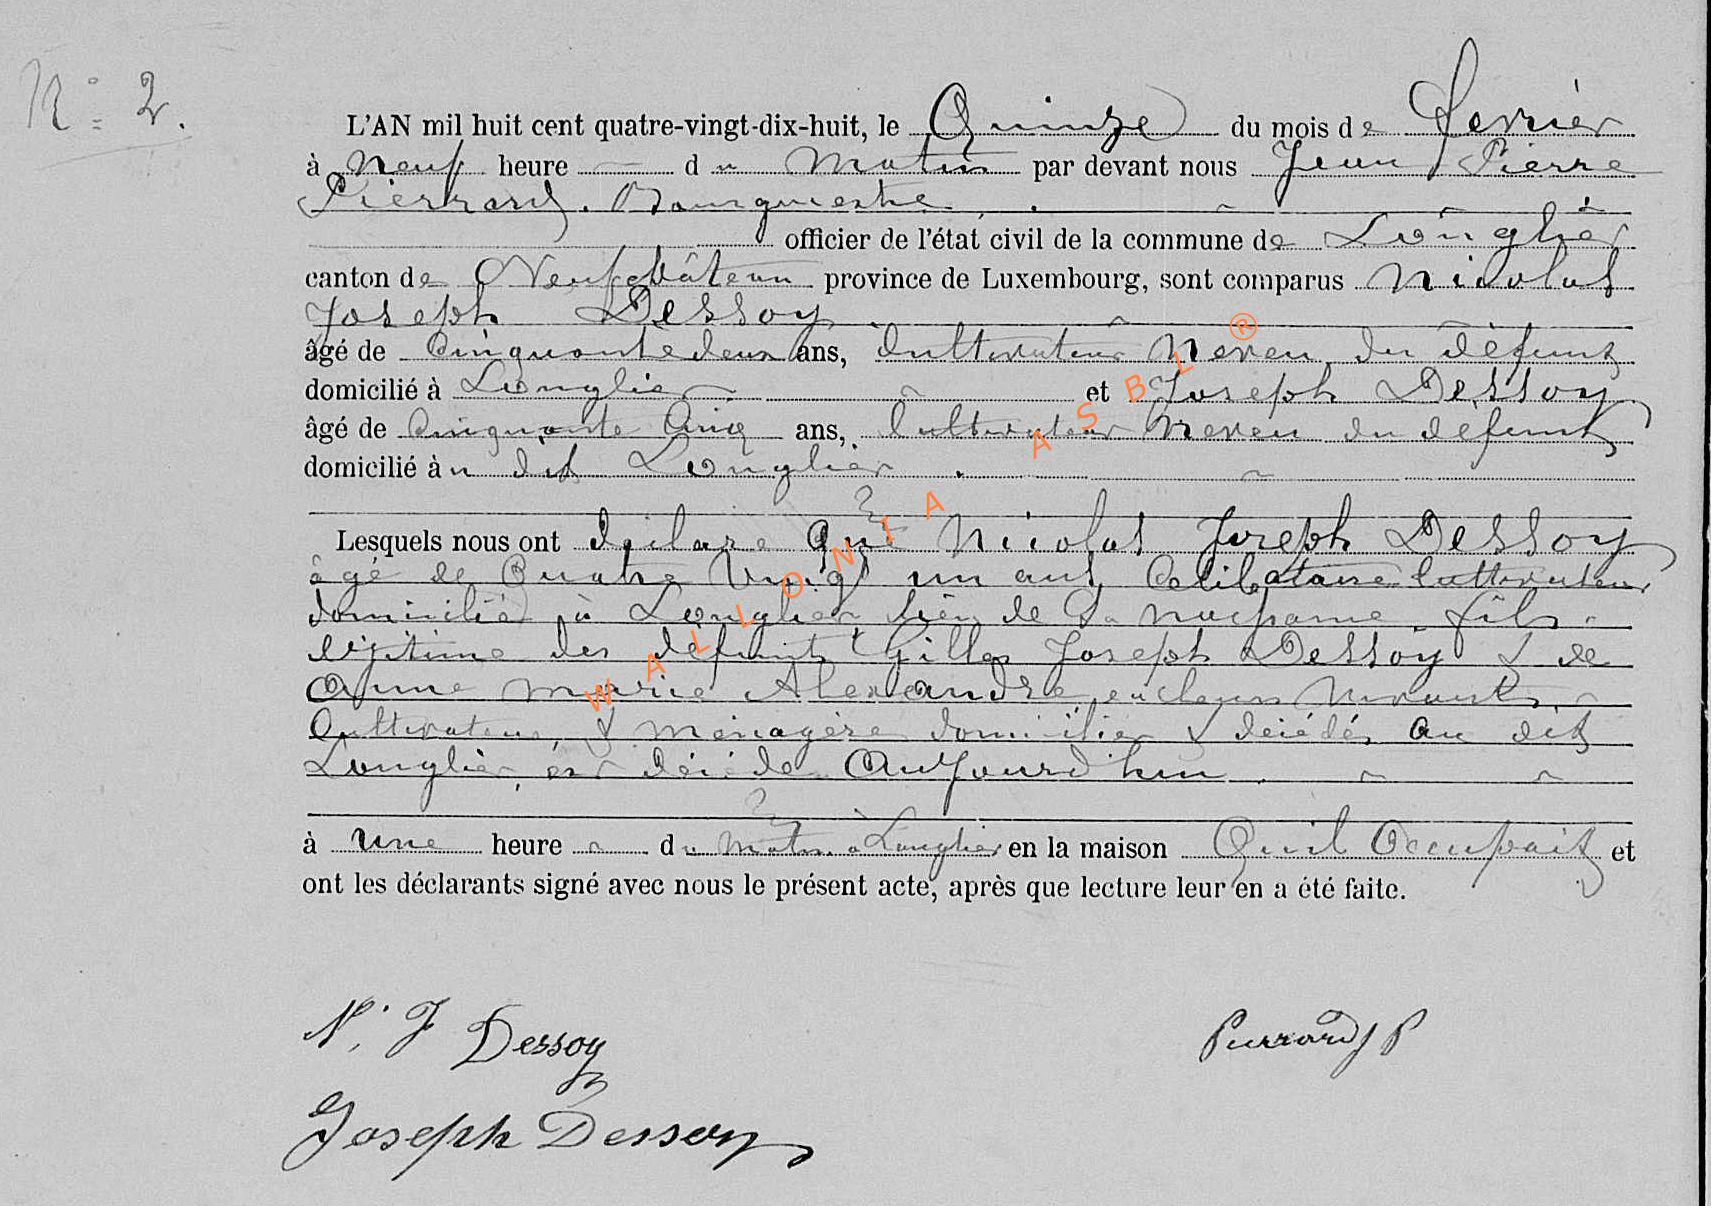 N° 2.
L'AN mil huit cent quatre-vingt-dix-huit, le Quinze du mois de Fevrièr
à Neuf heure du Matin par devant nous Jean Pierre
Pierrard. Bourguestre
officier de l'état civil de la commune de Longlièr
canton de Neufchâteau province de Luxembourg, sont comparus Nicolas
Joseph Dessoy
âgé de Cinquante deux ans, Cultivateur Neveu du défunt
domicilié à Longlier et Joseph Dessoy
âgé de Cinquante Cinq ans, Cultivateur Neveu du défunt
domicilié àu dit Longlièr.
Lesquels nous ont déclaré Que Nicolas Joseph Dessoy
âgé de Quatre Vingt un ans Celibataire Cultivateur
domicilié à Longlier lieu de Sa fils
légitime des défunts Gilles Joseph Dessoy & de
Anne Marie Alexandre, en leurs vivants
Cultivateur & Ménagère domiciliés & décédés au dit
Longlièr est décédé Aujourd'hui.
à une heure du Matin à Longlier en la maison Quil Occupait et
ont les déclarants signé avec nous le présent acte, après que lecture leur en a été faite.
N. J Dessoy
Pierrard J P
Joseph Dessoy
WALLONIA ASBL ®